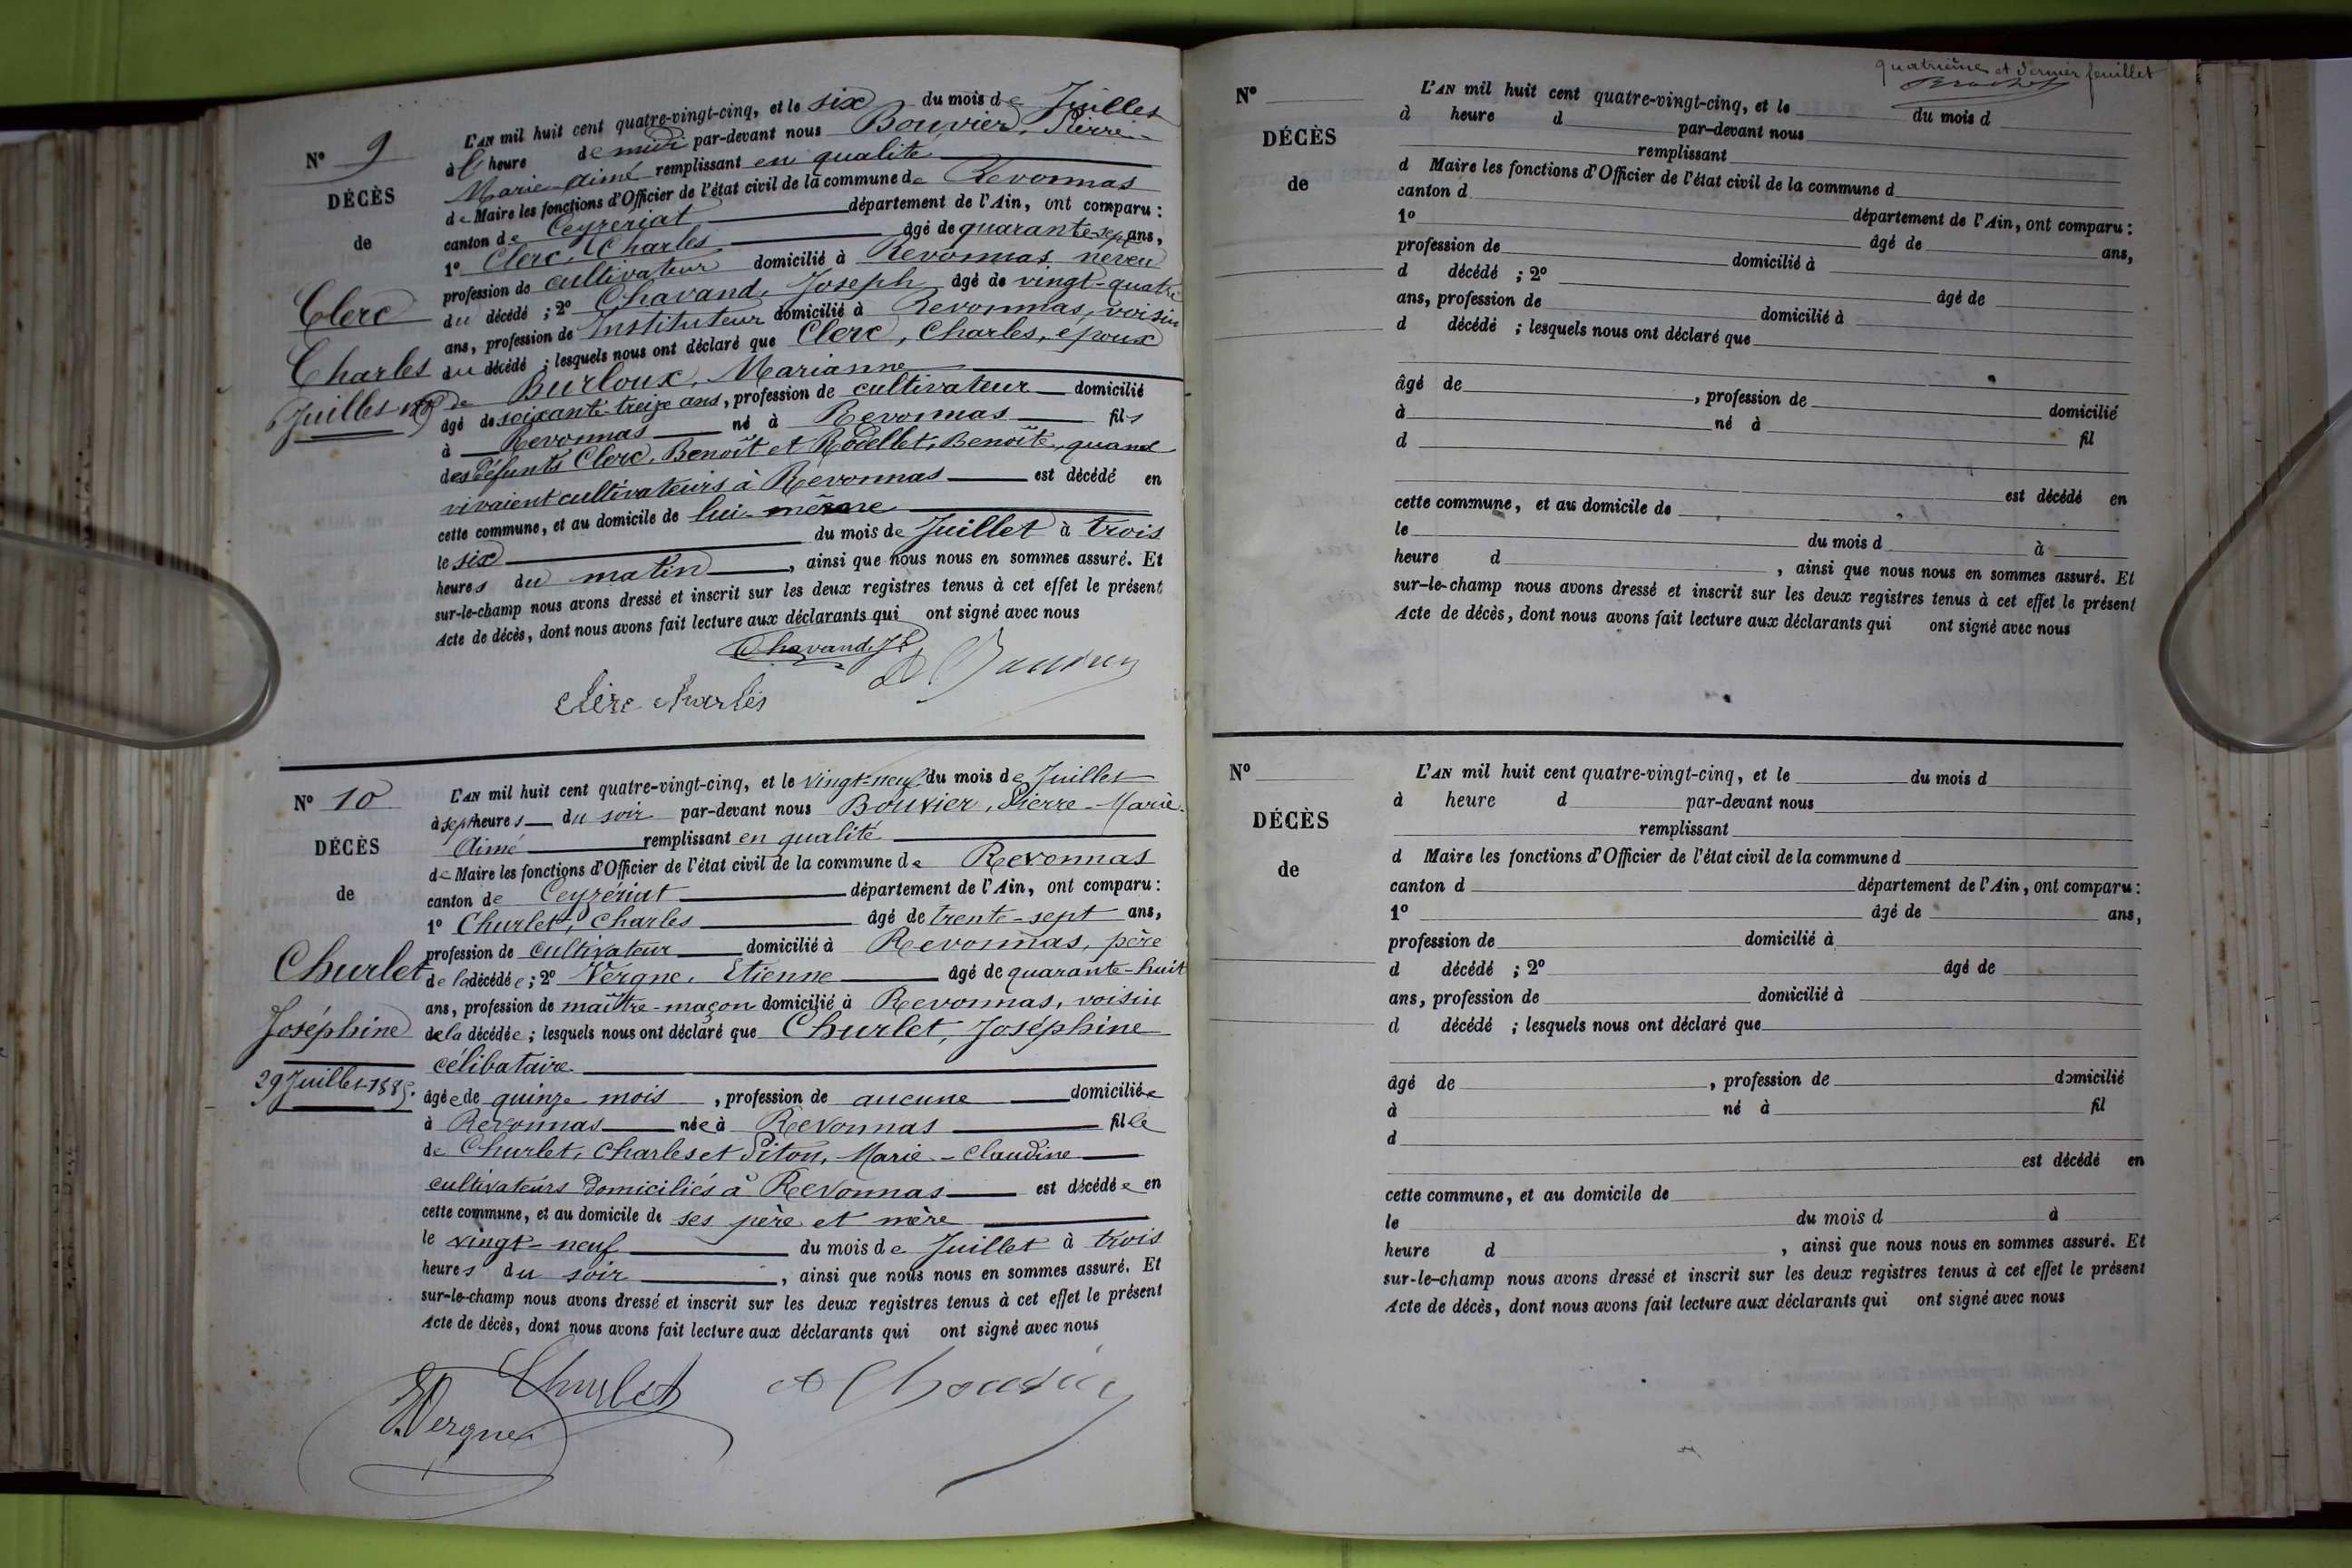 Nº 9
DÉCÈS
de
Clerc
Charles
6 Juillet
L'AN mil huit cent quatre-vingt-cinq, et le six du mois de Juillet
à l' heure de midi par-devant nous Bouvier, Pierre-
Marie-Aimé remplissant en qualité
de Maire les fonctions d'Officier de l'état civil de la commune de Revonnas
canton de Ceyzériat département de l'Ain, ont comparu :
1º Clerc, Charles âgé de quarante-sept ans,
profession de cultivateur domicilié à Revonnas neveu
du décédé ; 2º Chavand, Joseph âgé de vingt-quatre
ans, profession de Instituteur domicilié à Revonnas, voisin
du décédé ; lesquels nous ont déclaré que Clerc, Charles, époux
de Burloux, Marianne
âgé de soixante-treize ans, profession de cultivateur domicilié
à Revonnas né à Revonnas fils
des défunts Clerc, Benoît et Rodellet, Benoîte, quand
vivaient cultivateurs à Revonnas est décédé en
cette commune, et au domicile de lui-même
le six du mois de Juillet à trois
heures du matin, ainsi que nous nous en sommes assuré. Et
sur-le-champ nous avons dressé et inscrit sur les deux registres tenus à cet effet le présent
Acte de décès, dont nous avons fait lecture aux déclarants qui ont signé avec nous
Chavand, Jh
Clerc Charles
Nº 10
DÉCÈS
de
Churlet
Joséphine
29 Juillet 1885.
L'AN mil huit cent quatre-vingt-cinq, et le vingt-neuf du mois de Juillet
à sept heures du soir par-devant nous Bouvier, Pierre-Marie-
Aimé remplissant en qualité
de Maire les fonctions d'Officier de l'état civil de la commune de Revonnas
canton de Ceyzériat département de l'Ain, ont comparu :
1º Churlet, Charles âgé de trente-sept ans,
profession de cultivateur domicilié à Revonnas, père
de la décédée ; 2º Vergne, Etienne âgé de quarante-huit
ans, profession de maître-maçon domicilié à Revonnas, voisin
de la décédée ; lesquels nous ont déclaré que Churlet, Joséphine
célibataire
âgée de quinze mois, profession de aucune domiciliée
à Revonnas née à Revonnas fille
de Churlet, Charles et Piton, Marie-Claudine
cultivateurs domiciliés à Revonnas est décédée en
cette commune, et au domicile de ses père et mère
le vingt-neuf du mois de Juillet à trois
heures du soir, ainsi que nous nous en sommes assuré. Et
sur-le-champ nous avons dressé et inscrit sur les deux registres tenus à cet effet le présent
Acte de décès, dont nous avons fait lecture aux déclarants qui ont signé avec nous
Churlet
Vergne
quatrième et dernier feuillet
Nº
DÉCÈS
de
L'AN mil huit cent quatre-vingt-cinq, et le du mois d
à heure d par-devant nous
remplissant
d Maire les fonctions d'Officier de l'état civil de la commune d
canton d département de l'Ain, ont comparu :
1º âgé de ans,
profession de domicilié à
d décédé ; 2º âgé de
ans, profession de domicilié à
d décédé ; lesquels nous ont déclaré que
âgé de , profession de domicilié
à né à fil
d
est décédé en
cette commune, et au domicile de
le du mois d à
heure d , ainsi que nous nous en sommes assuré. Et
sur-le-champ nous avons dressé et inscrit sur les deux registres tenus à cet effet le présent
Acte de décès, dont nous avons fait lecture aux déclarants qui ont signé avec nous
Nº
DÉCÈS
de
L'AN mil huit cent quatre-vingt-cinq, et le du mois d
à heure d par-devant nous
remplissant
d Maire les fonctions d'Officier de l'état civil de la commune d
canton d département de l'Ain, ont comparu :
1º âgé de ans,
profession de domicilié à
d décédé ; 2º âgé de
ans, profession de domicilié à
d décédé ; lesquels nous ont déclaré que
âgé de , profession de domicilié
à né à fil
d
est décédé en
cette commune, et au domicile de
le du mois d à
heure d , ainsi que nous nous en sommes assuré. Et
sur-le-champ nous avons dressé et inscrit sur les deux registres tenus à cet effet le présent
Acte de décès, dont nous avons fait lecture aux déclarants qui ont signé avec nous